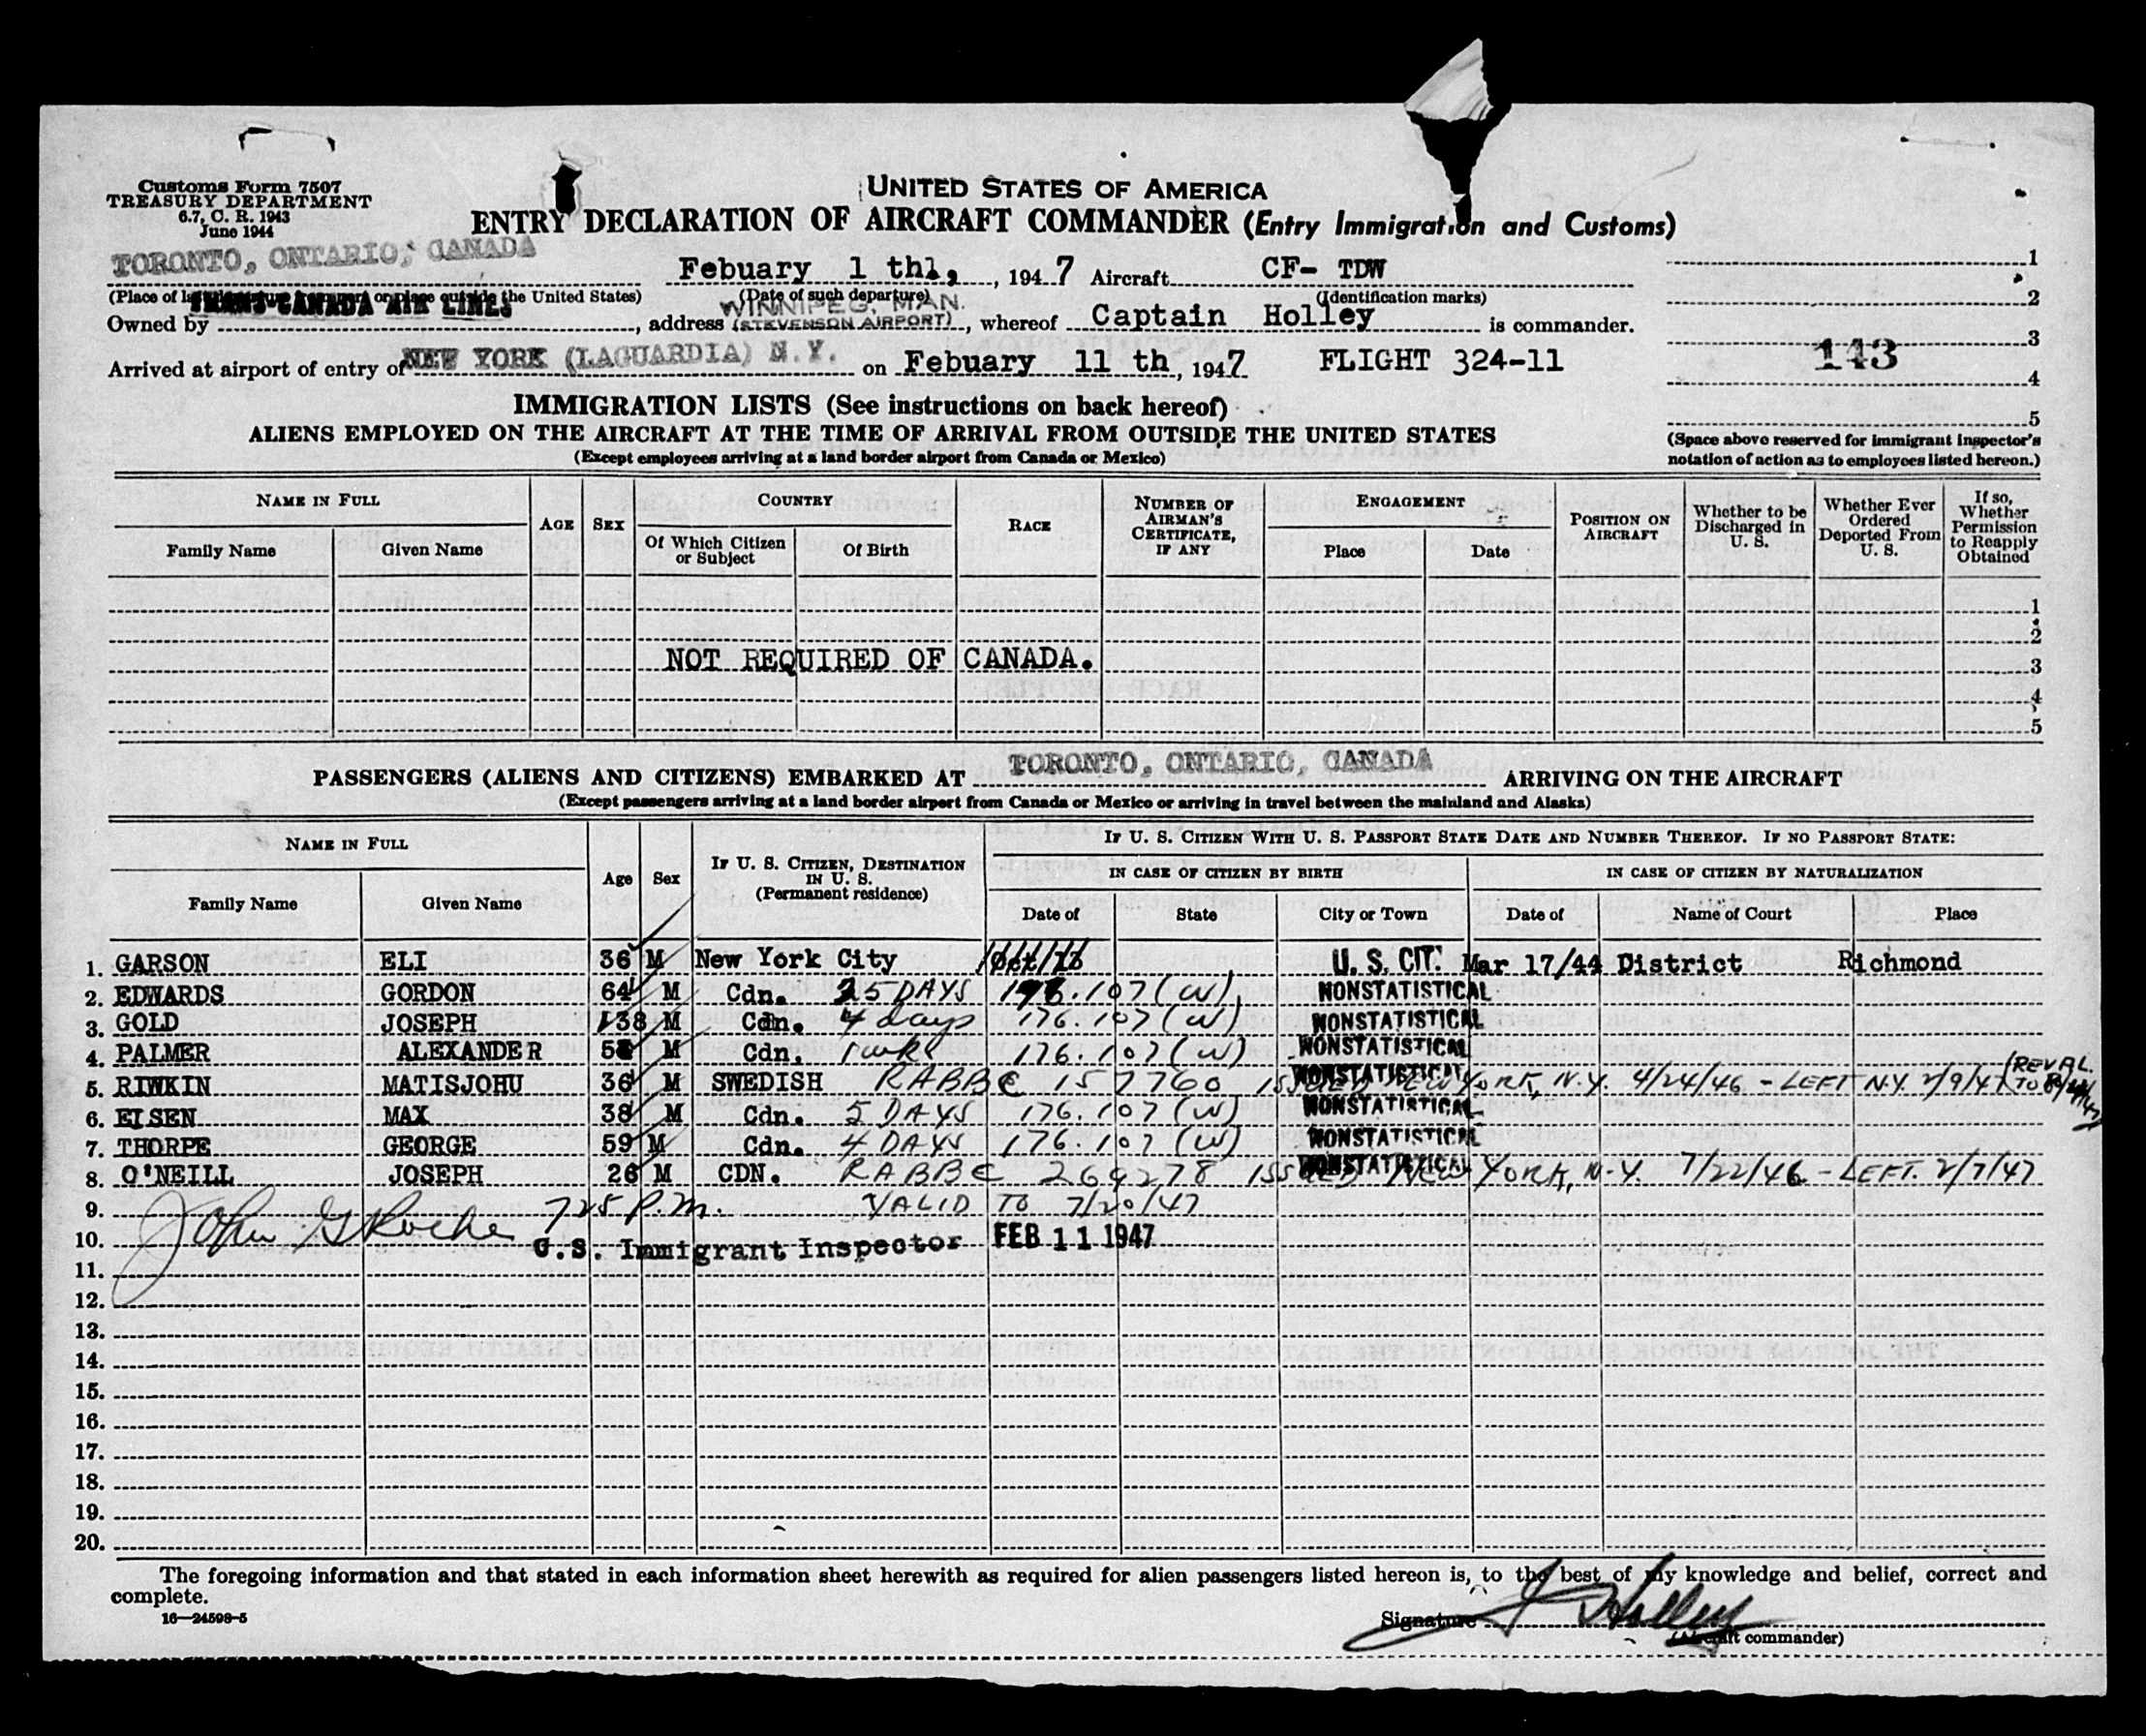 Customs Form 7507
TREASURY DEPARTMENT
6.7, C. R. 1943
June 1944
UNITED STATES OF AMERICA
ENTRY DECLARATION OF AIRCRAFT COMMANDER (Entry Immigration and Customs)
TORONTO, ONTARIO, CANADA Febuary 1 th1, , 1947 Aircraft CF- TDW 1
(Place of the United States) (Date of such departure) (Identification marks) 2
TRANS-CANADA AIR LINES WINNIPEG, MAN.
Owned by , address (STEVENSON AIRPORT) , whereof Captain Holley is commander. 3
143
Arrived at airport of entry of NEW YORK (LAGUARDIA) N.Y. on Febuary 11 th , 1947 FLIGHT 324-11 4
IMMIGRATION LISTS (See instructions on back hereof) 5
ALIENS EMPLOYED ON THE AIRCRAFT AT THE TIME OF ARRIVAL FROM OUTSIDE THE UNITED STATES
(Except employees arriving at a land border airport from Canada or Mexico)
(Space above reserved for immigrant inspector's
notation of action as to employees listed hereon.)
NAME IN FULL AGE SEX COUNTRY RACE NUMBER OF AIRMAN'S CERTIFICATE, IF ANY ENGAGEMENT POSITION ON AIRCRAFT Whether to be Discharged in U. S. Whether Ever Ordered Deported From U. S. If so, Whether Permission to Reapply Obtained
Family Name Given Name Of Which Citizen or Subject Of Birth Place Date
1
2
NOT REQUIRED OF CANADA. 3
4
5
PASSENGERS (ALIENS AND CITIZENS) EMBARKED AT TORONTO, ONTARIO, CANADA ARRIVING ON THE AIRCRAFT
(Except passengers arriving at a land border airport from Canada or Mexico or arriving in travel between the mainland and Alaska)
NAME IN FULL Age Sex IF U. S. CITIZEN, DESTINATION IN U. S. (Permanent residence) IF U. S. CITIZEN WITH U. S. PASSPORT STATE DATE AND NUMBER THEREOF. IF NO PASSPORT STATE:
IN CASE OF CITIZEN BY BIRTH IN CASE OF CITIZEN BY NATURALIZATION
Family Name Given Name Date of State City or Town Date of Name of Court Place
1. GARSON ELI 36 M New York City U.S. CIT. Mar 17/44 District Richmond
2. EDWARDS GORDON 64 M Cdn. 25 DAYS 176.107 (W) NONSTATISTICAL
3. GOLD JOSEPH 38 M Cdn. 4 days 176.107 (W) NONSTATISTICAL
4. PALMER ALEXANDER M Cdn. 1 wk 176.107 (W) NONSTATISTICAL
5. RIWKIN MATISJOHU 36 M SWEDISH RABBC 157760 ISSUED NEW YORK, N.Y. 4/24/46 - LEFT N.Y. 2/9/47 (REVAL. TO
NONSTATISTICAL
6. EISEN MAX 38 M Cdn. 5 DAYS 176.107 (W) NONSTATISTICAL
7. THORPE GEORGE 59 M Cdn. 4 DAYS 176.107 (W) NONSTATISTICAL
8. O'NEILL JOSEPH 26 M CDN. RABBC 269278 ISSUED NEW YORK, N.Y. 7/22/46 - LEFT. 2/7/47
NONSTATISTICAL
9. 725 P.M. VALID TO 7/20/47
10. John G Roche U.S. Immigrant Inspector FEB 11 1947
11.
12.
13.
14.
15.
16.
17.
18.
19.
20.
The foregoing information and that stated in each information sheet herewith as required for alien passengers listed hereon is, to the best of my knowledge and belief, correct and
complete.
16—24598-5
Signature Holley
(Aircraft commander)